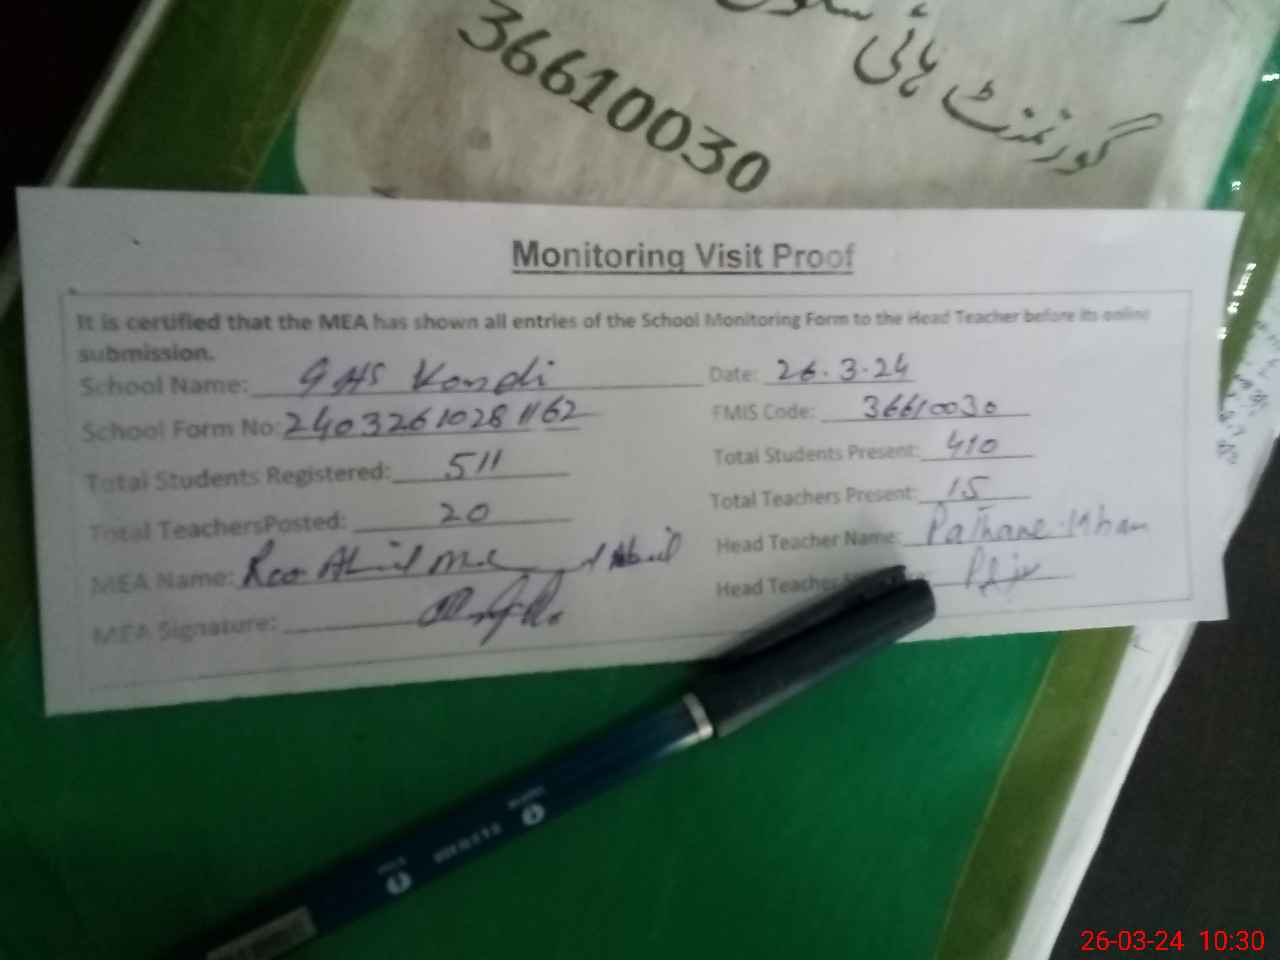 36610030
گورنمنٹ ہائی سکول
Monitoring Visit Proof
It is certified that the MEA has shown all entries of the School Monitoring Form to the Head Teacher before its online
submission.
School Name: GHS Kondi Date: 26.3.24
School Form No: 2403261028 1162 EMIS Code: 36610030
Total Students Registered: 511 Total Students Present: 410
Total TeachersPosted: 20 Total Teachers Present: 15
MEA Name: Head Teacher Name: Pathane Khan
MEA Signature: Head Teacher
26-03-24 10:30